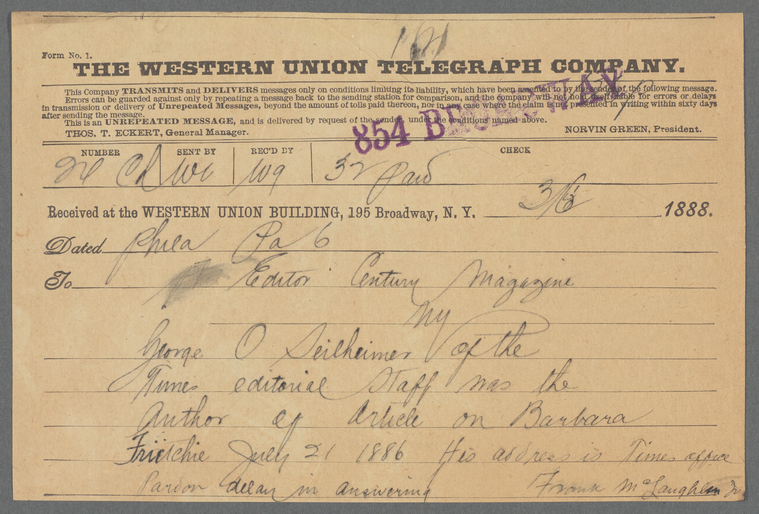 Form No. 1.
THE WESTERN UNION TELEGRAPH COMPANY.
This Company TRANSMITS and DELIVERS messages only on conditions limiting its liability, which have been assented to by the sender of the following message.
Errors can be guarded against only by repeating a message back to the sending station for comparison, and the Company will not hold itself liable for errors or delays
in transmission or delivery of Unrepeated Messages, beyond the amount of tolls paid thereon, nor in any case where the claim is not presented in writing within sixty days
after sending the message.
This is an UNREPEATED MESSAGE, and is delivered by request of the sender, under the conditions named above.
THOS. T. ECKERT, General Manager. NORVIN GREEN, President.
854 BROADWAY
NUMBER SENT BY REC'D BY CHECK
32 Paid
Received at the WESTERN UNION BUILDING, 195 Broadway, N. Y. 3/6 1888.
Dated Phila Pa 6
To Editor Century Magazine
NY
George O Seilheimer of the
Times editorial staff was the
author of article on Barbara
Frietchie July 21 1886 His address is Times office
Pardon delay in answering Frank McLaughlin Jr